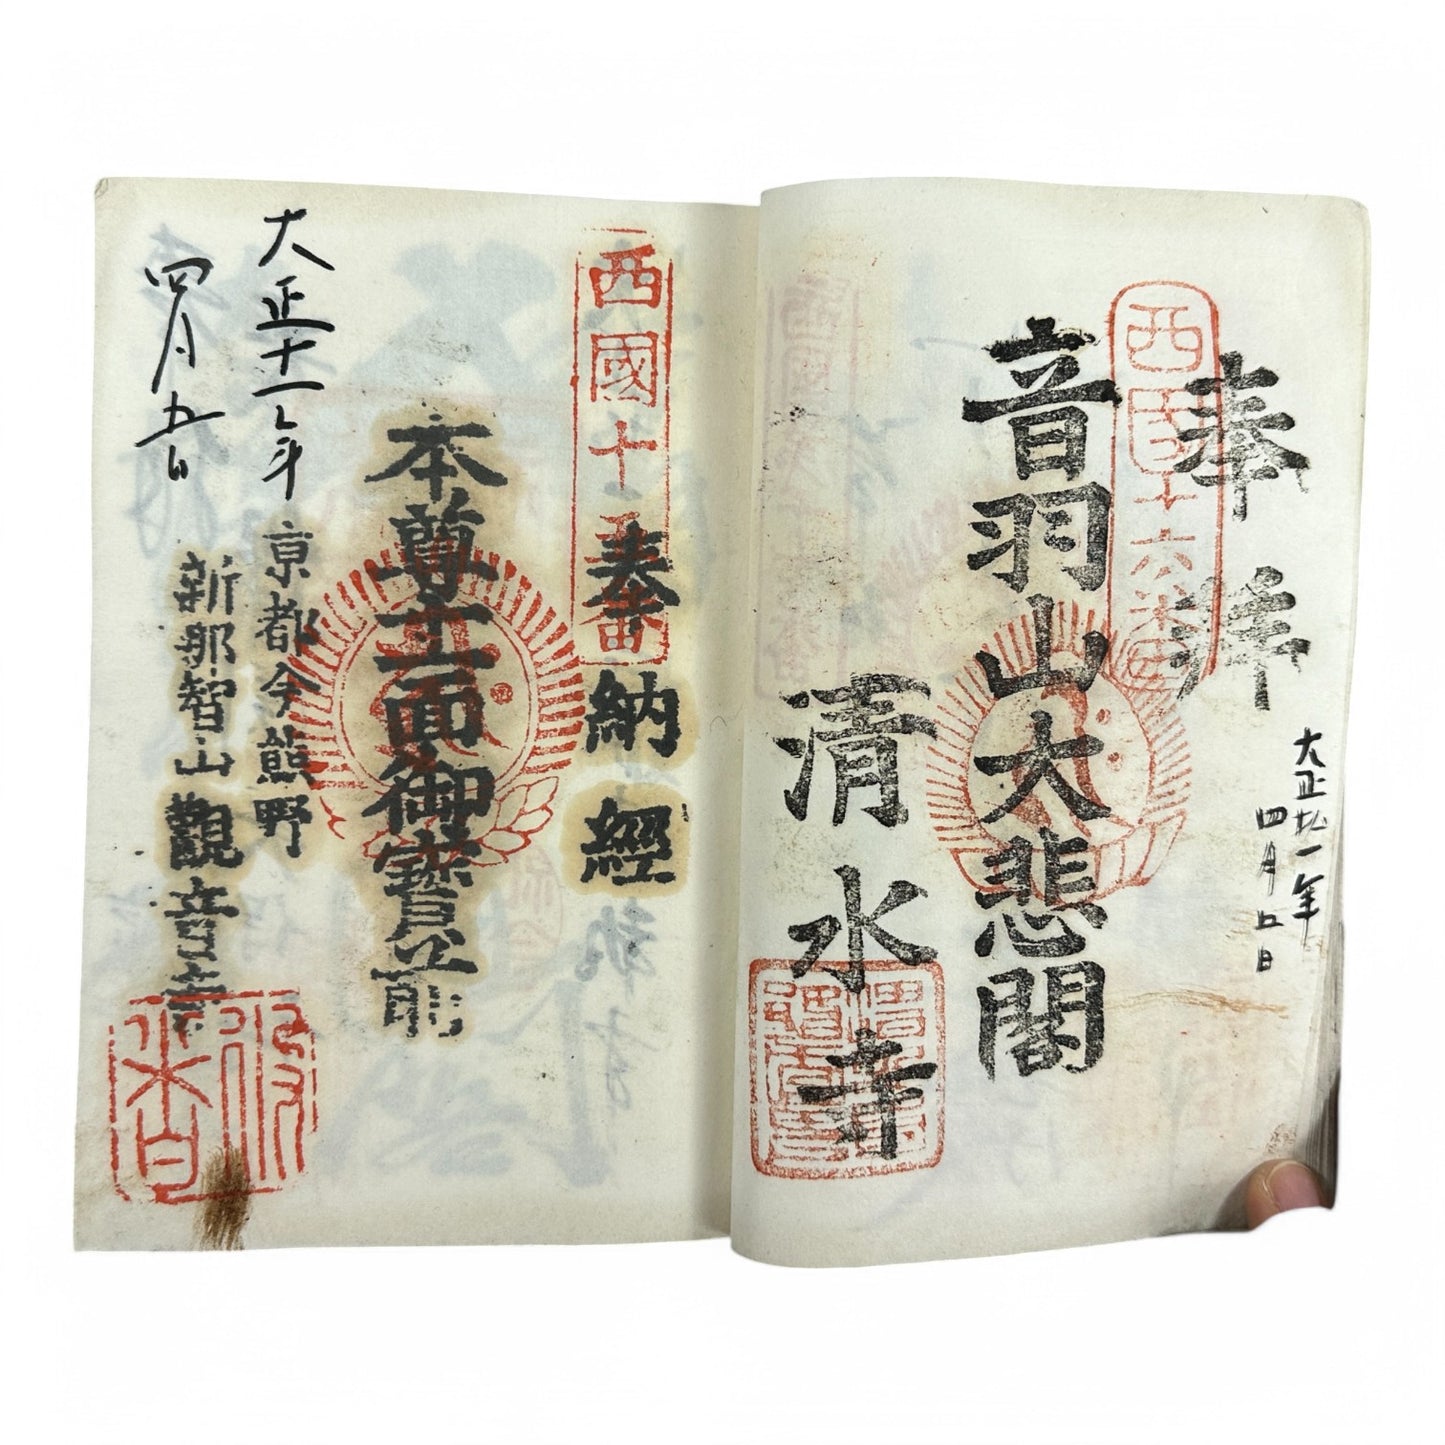 奉拜
西國十六番
音羽山大悲閣
清水寺
大正十一年
四月五日
西國十五番
奉納經
本尊十一面御寶前
京都今熊野
新那智山觀音寺
大正十一年
四月五日